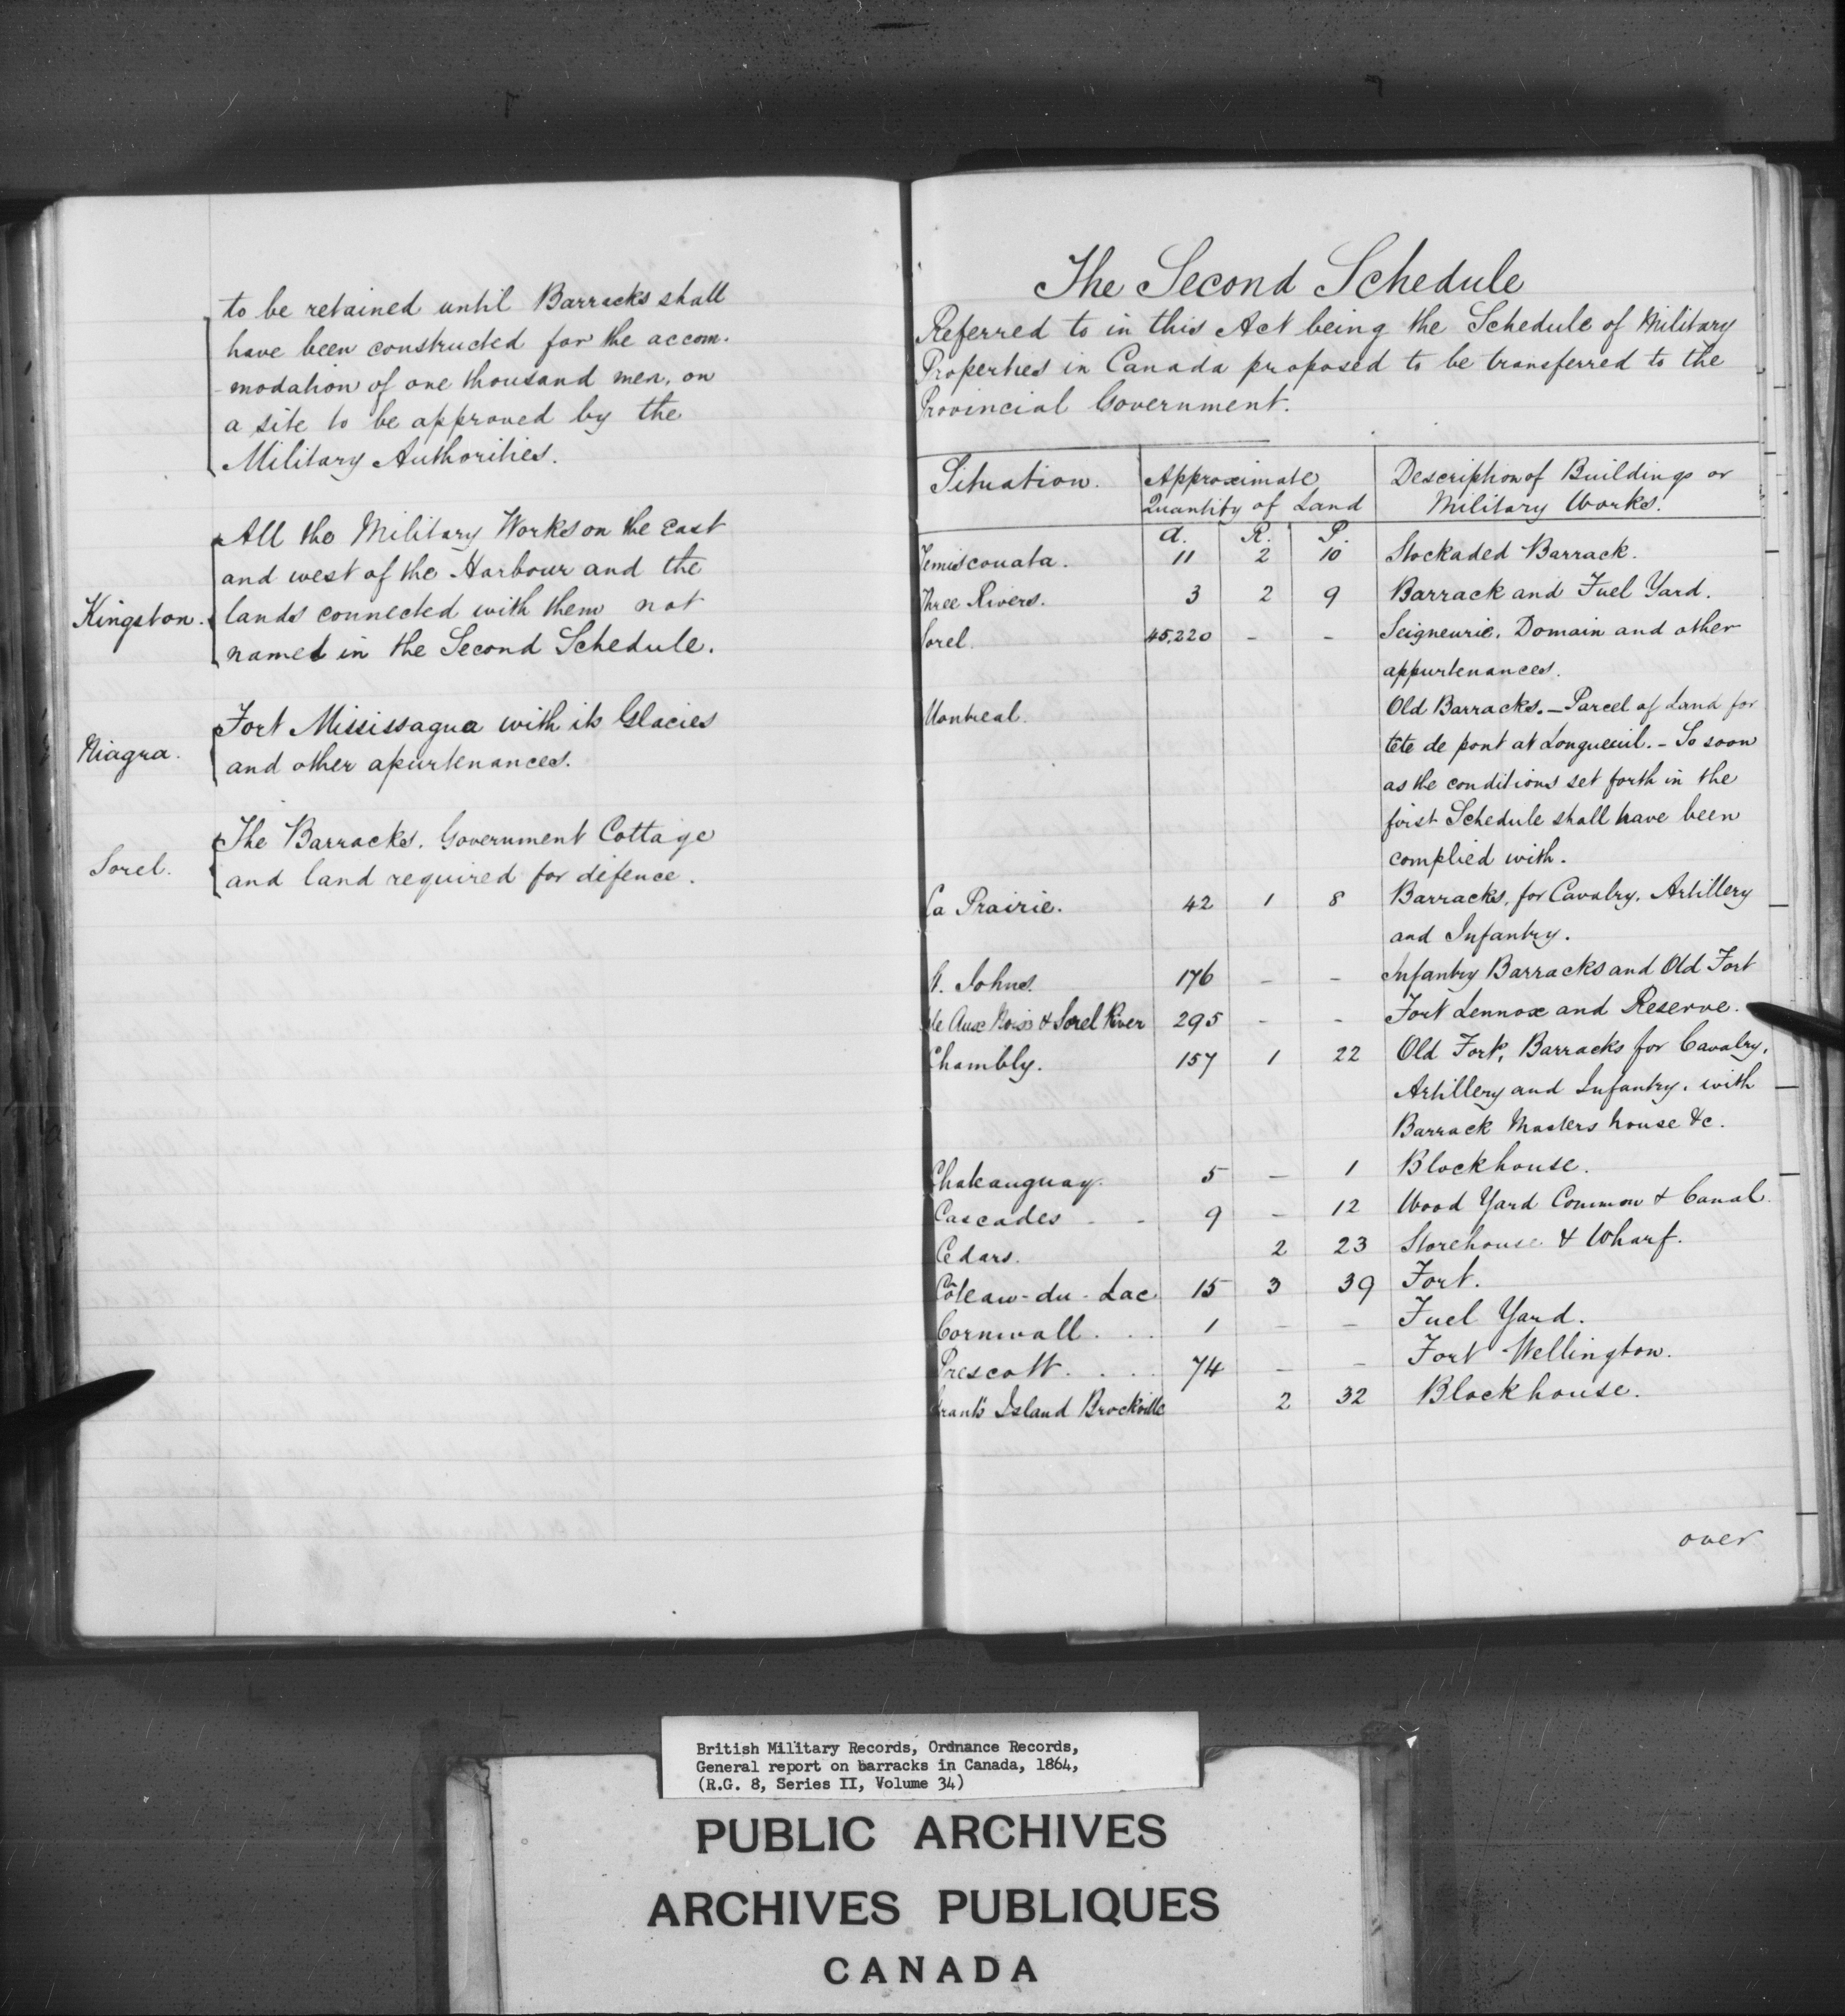 to be retained until Barracks shall
have been constructed for the accom-
-modation of one thousand men, on
a site to be approved by the
Military Authorities.
All the Military Works on the East
and west of the Harbour and the
Kingston. lands connected with them not
named in the Second Schedule.
Fort Mississagua with its Glacies
Niagra. and other apurtenances.
The Barracks. Government Cottage
Sorel. and land required for defence.
The Second Schedule
Referred to in this Act being the Schedule of Military
Properties in Canada proposed to be transferred to the
Provincial Government.
Situation. Approximate Description of Buildings or
Quantity of Land Military Works.
a. R. P.
Temiscouata. 11 2 10 Stockaded Barrack.
Three Rivers. 3 2 9 Barrack and Fuel Yard.
Sorel. 45,220 - - Seigneurie, Domain and other
appurtenances.
Montreal. Old Barracks. - Parcel of Land for
tête de pont at Longueuil. - So soon
as the conditions set forth in the
first Schedule shall have been
complied with.
La Prairie. 42 1 8 Barracks, for Cavalry, Artillery
and Infantry.
St. Johns. 176 - - Infantry Barracks and Old Fort
Isle Aux Noix & Sorel River 295 - - Fort Lennox and Reserve.
Chambly. 157 1 22 Old Fort, Barracks for Cavalry,
Artillery and Infantry, with
Barrack Masters house &c.
Chateauguay. 5 - 1 Blockhouse.
Cascades - - 9 - 12 Wood Yard Common & Canal.
Cedars. 2 23 Storehouse & Wharf.
Côteau-du-Lac 15 3 39 Fort.
Cornwall . . . 1 - - Fuel Yard.
Prescott . . . . 74 - - Fort Wellington.
Grants Island Brockville 2 32 Blockhouse.
over
British Military Records, Ordnance Records,
General report on barracks in Canada, 1864,
(R.G. 8, Series II, Volume 34)
PUBLIC ARCHIVES
ARCHIVES PUBLIQUES
CANADA